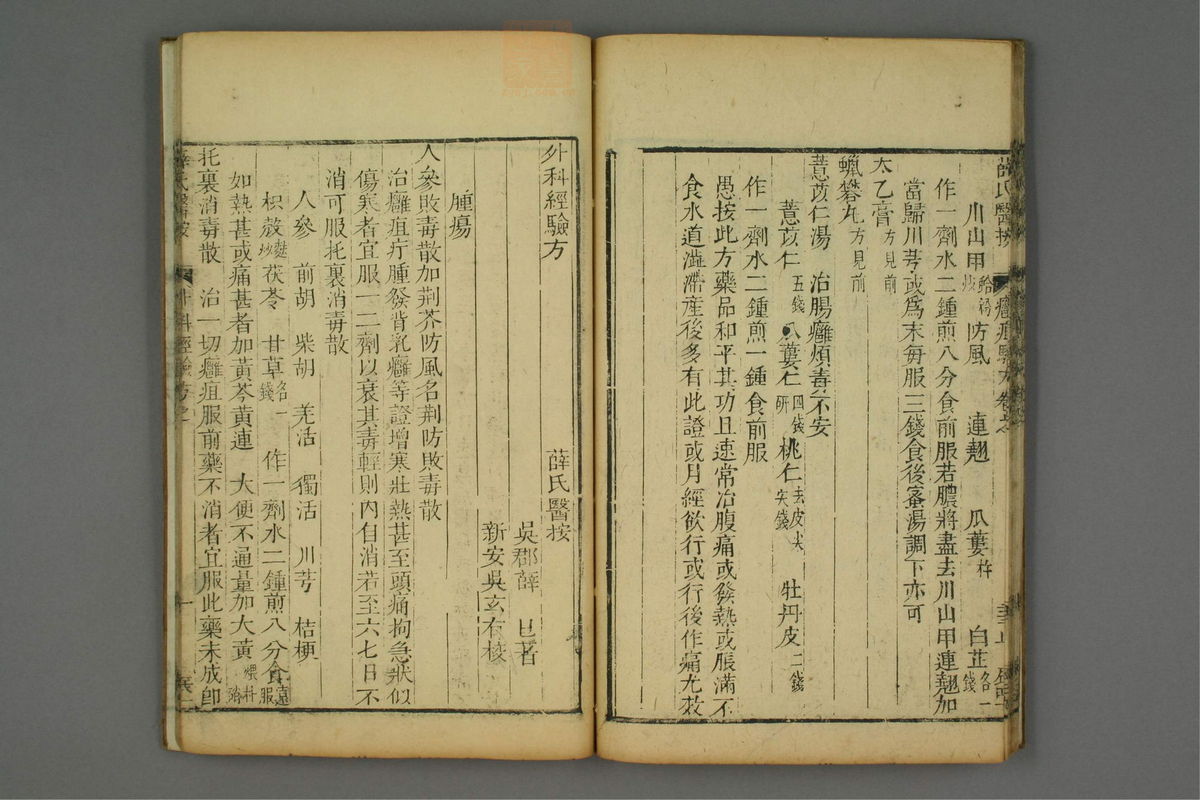 薛氏醫按
川山甲蛤粉炒 防風 連翹 瓜蔞杵 白芷各一錢
作一劑水二鍾煎八分食前服若膿將盡去川山甲連翹加
當歸川芎或爲末每服三錢食後蜜湯調下亦可
太乙膏方見前
蠟礬丸方見前
薏苡仁湯 治腸癰煩毒不安
薏苡仁五錢 瓜蔞仁四錢研 桃仁去皮尖 牡丹皮二錢
作一劑水二鍾煎一鍾食前服
愚按此方藥品和平其功且速常治腹痛或發熱或脹滿不
食水道澁滯產後多有此證或月經欲行或行後作痛尤效
外科經驗方 薛氏醫按
吳郡薛 已著
新安吳玄有校
腫瘍
人參敗毒散加荆芥防風名荆防敗毒散
治癰疽疔腫發背乳癰等證增寒壯熱甚至頭痛拘急狀似
傷寒者宜服一二劑以衰其毒輕則內自消若至六七日不
消可服托裏消毒散
人參 前胡 柴胡 羌活 獨活 川芎 桔梗
枳殼麩炒 茯苓 甘草各一錢 作一劑水二鍾煎八分食遠服
如熱甚或痛甚者加黃芩黃連 大便不通量加大黃
托裏消毒散 治一切癰疽服前藥不消者宜服此藥未成卽
薛氏醫按 外科經驗方 一